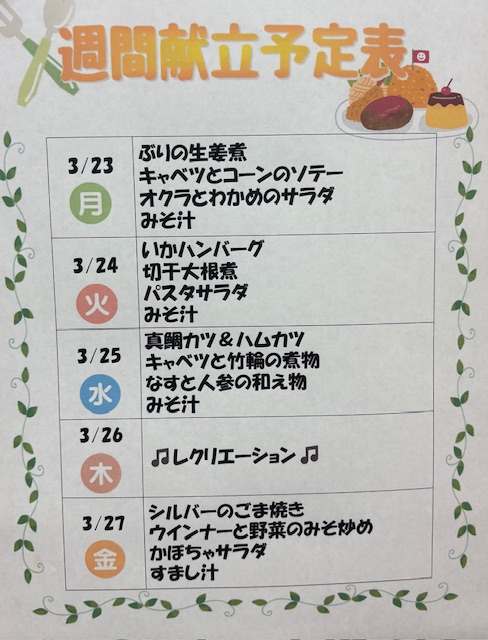 週間献立予定表
3/23
月
ぶりの生姜煮
キャベツとコーンのソテー
オクラとわかめのサラダ
みそ汁
3/24
火
いかハンバーグ
切干大根煮
パスタサラダ
みそ汁
3/25
水
真鯛カツ&ハムカツ
キャベツと竹輪の煮物
なすと人参の和え物
みそ汁
3/26
木
♫レクリエーション♫
3/27
金
シルバーのごま焼き
ウインナーと野菜のみそ炒め
かぼちゃサラダ
すまし汁